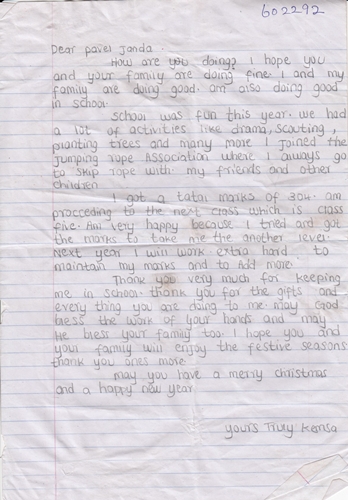 602292
Dear pavel Janda.
How are you doing? I hope you
and your family are doing fine. I and my
family are doing good. am also doing good
in school.
School was fun this year. we had
a lot of activities like drama, scouting,
planting trees and many more I joined the
jumping rope Association where I always go
to skip rope with my friends and other
children
I got a total marks of 304. am
proceeding to the next class which is class
five. Am very happy because I tried and got
the marks to take me the another lever.
Next year I will work extra hard to
maintain my marks and to add more.
Thank you very much for keeping
me in school. thank you for the gifts and
every thing you are doing to me. may God
bless the work of your hands and may
He bless your family too. I hope you and
your family will enjoy the festive seasons
thank you ones more.
may you have a merry christmas
and a happy new year
yours Truly Kensa